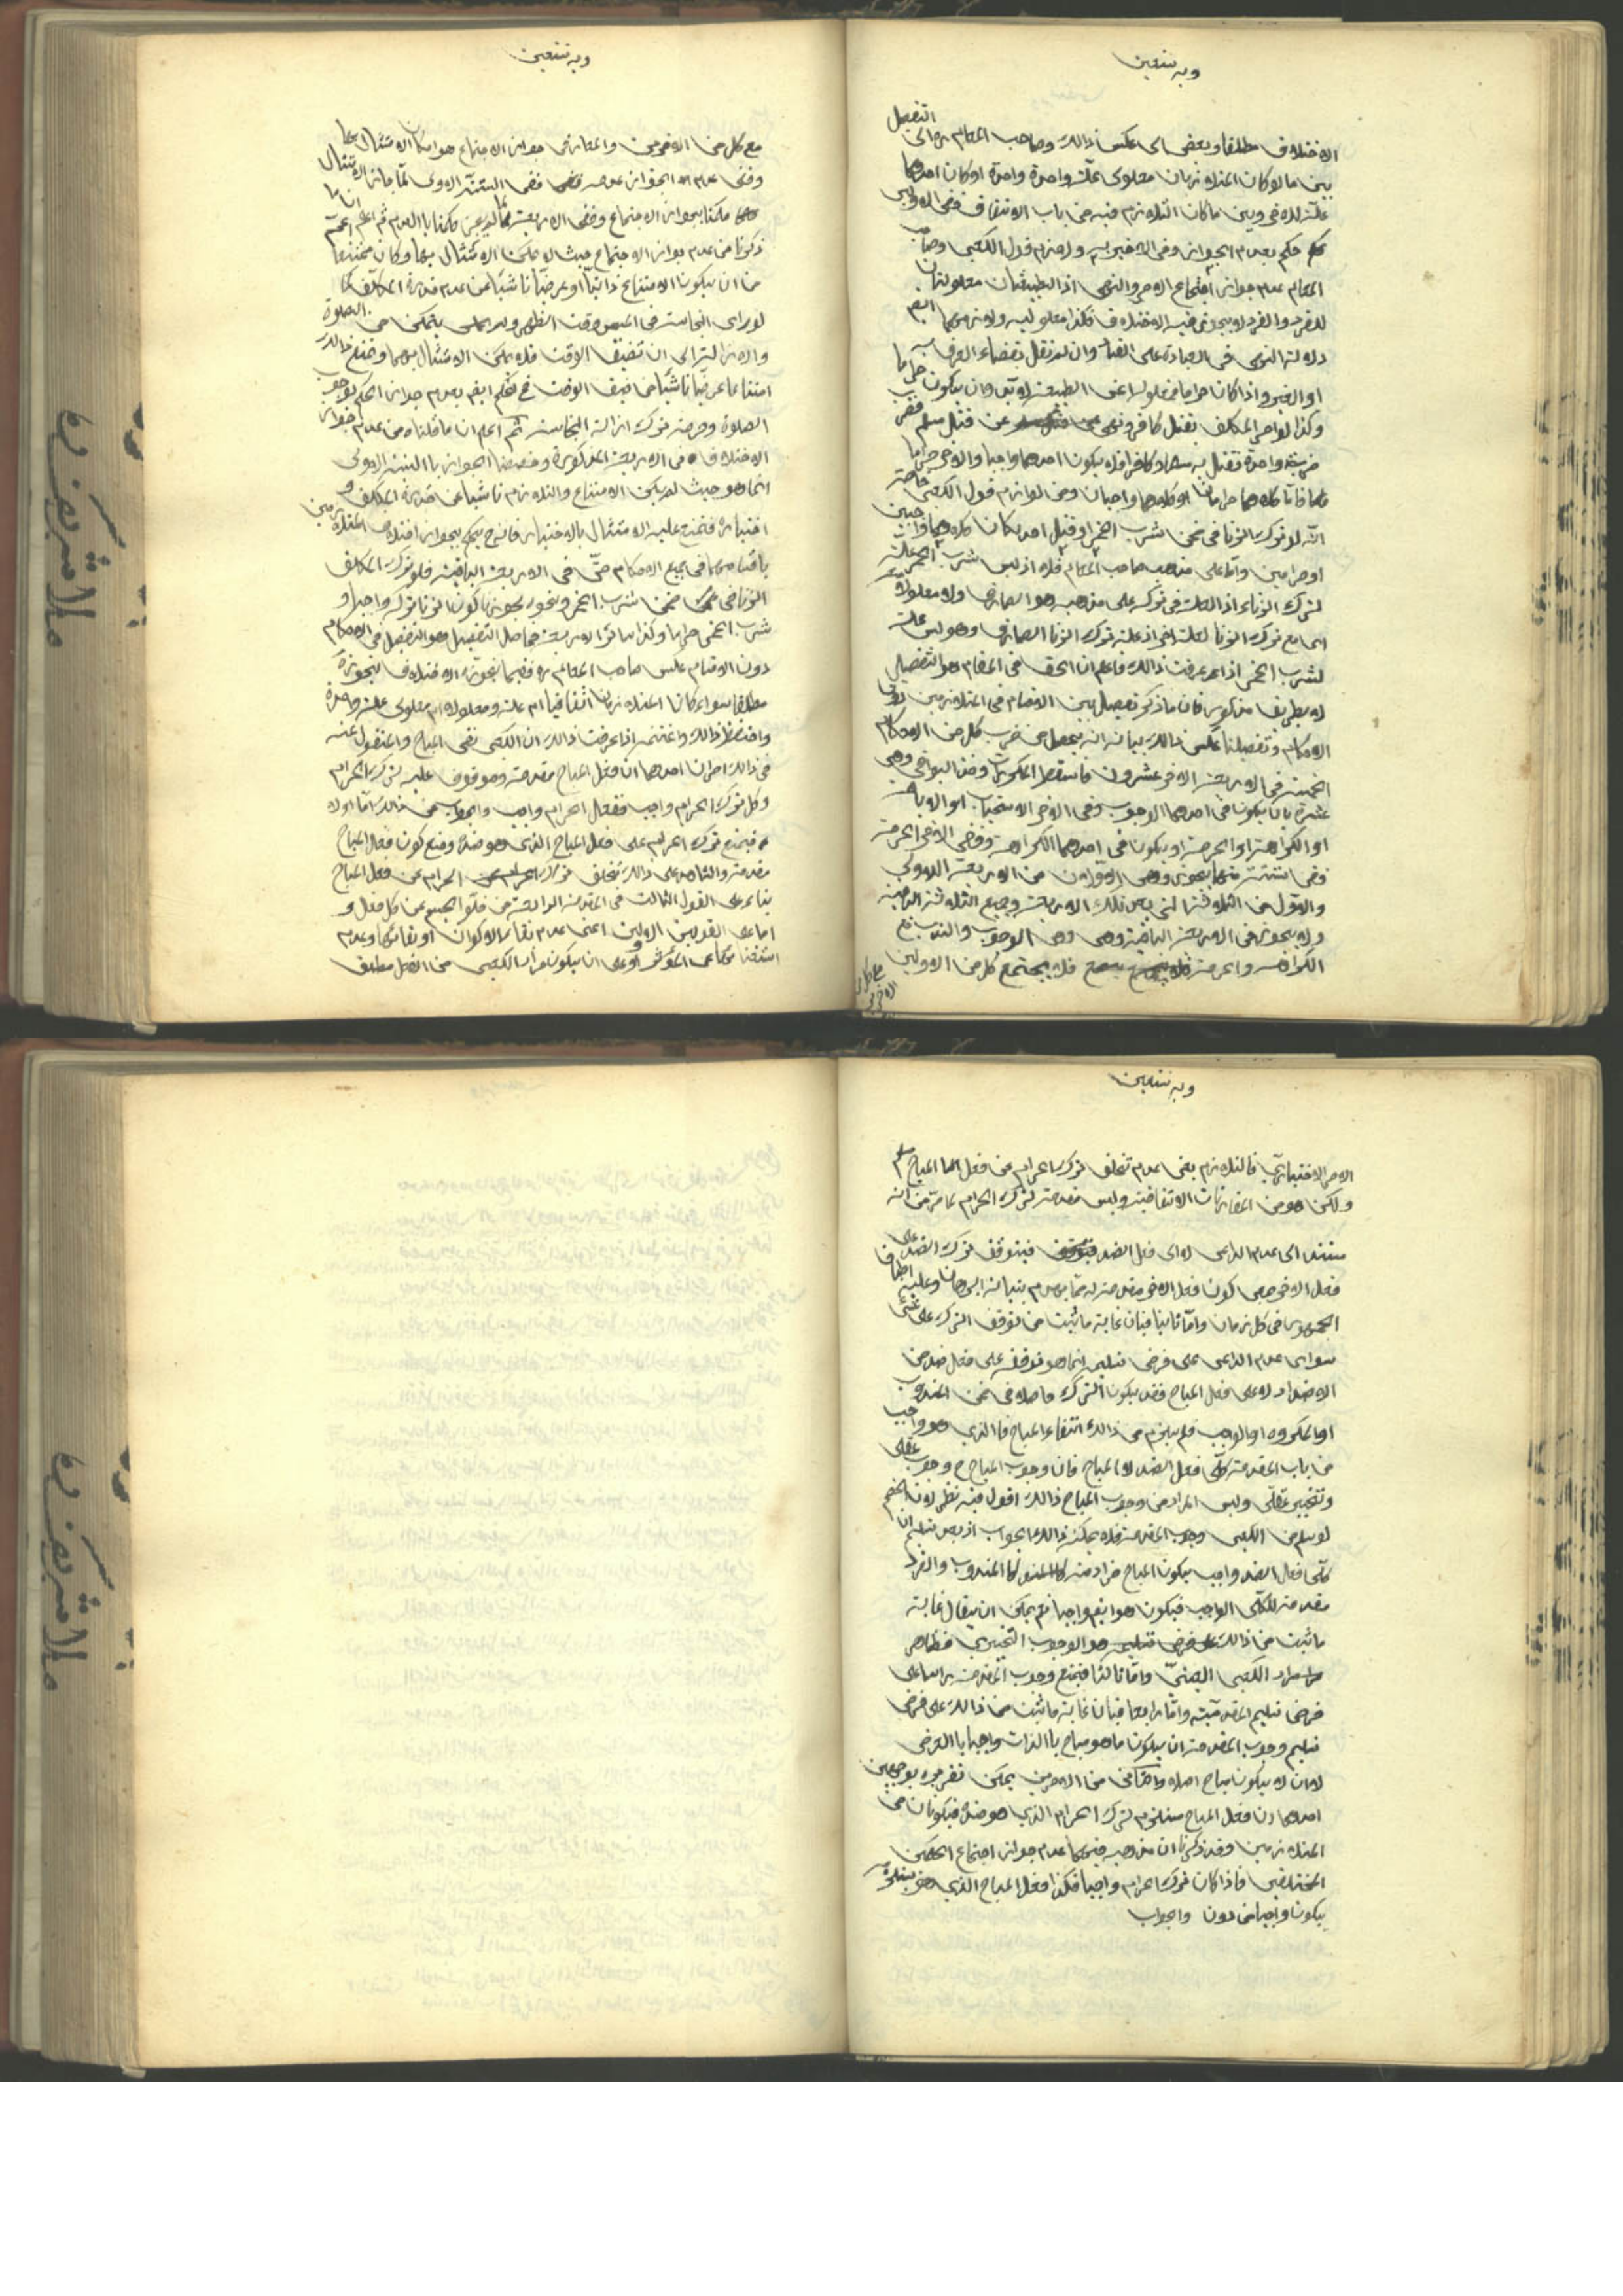 وبه نستعين
التفصيل
الاختلاف مطلقا وبعض الى عكس ذالك وصاحب المعالم ره الى
بين ما لو كان المتلازمان معلولى علّة واحدة او كان احدهما
علّة للاخر وبين ما كان التلازم فيه من باب الاتفاق ففى الاولين
حكم بعدم الجواز وفى الاخير به والتزم قول الكعبى وصاحب
المعالم عدم جواز اجتماع الامر والنهى اذ الطبيعتان معلولتان
للفرد والفرد لا يجوز فيه الاختلاف فكذا معلوليه ولازمهما ايضا
دلالة النهى فى العبادة على الفساد وان لم نقل بقضاء العرف به
او الغير واذا كان حراما فمعلوله اعنى الطبيعة لا بد وان يكون حراما
وكذا لو امر المكلف بقتل كافر ونهى عن قتل مسلم فضرب
ضربة واحدة فقتل به مسلما وكافرا فلا يكون احدهما واجبا والاخر حراما
فاما كلاهما حرامان او كلاهما واجبان ومن لوازم قول الكعبى خاصة
انّه لو ترك الزنا فى ضمن شرب الخمر او قتل احد يكون كلاهما واجبين
او حرامين وامّا على مذهب صاحب المعالم فلا اذ ليس شرب الخمر علة
لترك الزناء اذ العلة فى تركه على مذهبه هو الصارف ولا معلولا
لشرب الخمر اذا عرفت ذالك فاعلم ان الحق فى المقام هو التفصيل
لا بطريق مذكور فان ما ذكر تفصيل بين الاقسام فى المتلازمين دون
الاحكام وتفصيلنا عكس ذالك بيانه انه يحصل من ضرب كل من الاحكام
الخمسة فى الاربعة الاخر عشرون فاسقط المكررات وفى البواقى وهى
عشرة بان يكون فى احدهما الوجوب وفى الاخر الاستحباب او الاباحة
او الكراهة او الحرمة او يكون فى احدهما الكراهة وفى الاخر الحرمة
ولا يجوز فى الاربعة الباقية وهى الوجوب والندب مع
الكراهة والحرمة فلا يجتمع كل من الاولين
مع كل من
الاخرين
وبه نستعين
مع كل من الاخرين والمعيار فى جواز الاجتماع هو امكان الامتثال بهما
وفى عدم الجواز عدمه ففى الستة الاولى لمّا جاز الامتثال
حكمنا بجواز الاجتماع وفى الاربعة لما لم يجز حكمنا بالعدم ثم اعلم انّ ما
ذكرنا من عدم جواز الاجتماع حيث لا يمكن الامتثال بهما وكان ممتنعا
من ان يكون الامتناع ذاتيّا او عرضيّا ناشيا عن عدم قدرة المكلّف كما
لو راى النجاسة فى المسجد وقت الظهر ولم يصل يتمكن من الصلوة
والازالة الى ان تضيق الوقت فلا يمكن الامتثال بهما ومنع ذالك
امتناعا عرضيّا ناشيا من ضيق الوقت فح نحكم ايضا بعدم جواز الحكم بوجوب
الصلوة وحرمة ترك ازالة النجاسة ثم اعلم ان ما قلناه من عدم جواز
الاختلاف فى الاربعة المذكورة وخصصنا الجواز بالستة الاولى
انما هو حيث لم يكن الامتناع والتلازم ناشيا عن قدرة المكلف و
اختياره فيمتنع عليه الامتثال بالاختيار فانه ح يحكم بجواز اختلاف المتلازمين
باقسامهما فى جميع الاحكام حتّى فى الاربعة الباقية فلو ترك المكلف
الزنا فى ضمن شرب الخمر ونحوه يجوز ان يكون الزنا تركه واجبا و
شرب الخمر حراما وكذا سائر الاربعة فحاصل التفصيل هو التفصيل فى الاحكام
دون الاقسام عكس صاحب المعالم ره ففيما يجوز الاختلاف فيجوز
مطلقا سواء كان المتلازمان اتفاقيا ام علة ومعلولا ام معلولى علة واحدة
واحتفظ ذالك واغتنمه اذا عرفت ذالك ان الكعبى نفى المباح والمنقول عنه
فى ذالك امران احدهما ان فعل المباح مقدمة وموقوف عليه لترك الحرام
وكل ترك الحرام واجب ففعل الحرام واجب والجواب عن ذالك امّا اولا
فبمنع ترك الحرام على فعل المباح الذى هو ضده ومنع كون فعل المباح
مقدمة والشاهد على ذالك تخلف ترك الحرام عن فعل المباح
بناء على القول الثالث فى المقدمة الرابعة من خلوّ الجسم عن كل فعل و
اما على القولين الاولين اعنى عدم بقاء الاكوان او بقائها وعدم
استغنائها عن المؤثر او على ان يكون مراد الكعبى من الفعل مطلق
وبه نستعين
الامر الاختيارى فالتلازم بمعنى عدم تخلف ترك الحرام من فعل المباح مسلم
ولكن هو من المقارنات الاتفاقية وليس مقدمة لترك الحرام لما مرّ من انه
مستند الى عدم الداعى لا الى فعل الضد فيتوقف ترك الضد على
فعل الاخر بمعنى كون فعل الاخر مقدمة له ممّا يعدم بنيانه البرهان وعليه اطباق
الجمهور فى كل زمان وامّا ثانيا فبان غاية ما ثبت من توقف الترك على شئ
سواى عدم الداعى على فرض تسليمه انما هو توقفه على فعل ضد من
الاضداد لا على فعل المباح فقد يكون الترك حاصلا فى ضمن المندوب
او المكروه او الواجب فلم يلزم من ذالك انتفاء المباح فالذى هو واجب
من باب المقدمة كلّى فعل الضد لا المباح فان وجوب المباح ح وجوب عقلى
وتخيير عقلى وليس المراد من وجوب المباح ذالك اقول فيه نظر لان الخصم
لو سلم من الكعبى وجوب المقدمة فلا يمكنه ذالك الجواب اذ بعد تسليم ان
كلّى فعل الضد واجب يكون المباح فرد منه كالمندوب والفرد
مقدمة للكلّى الواجب فيكون هو ايضا واجبا نعم يمكن ان يقال غاية
ما ثبت من ذالك على فرض تسليمه هو الوجوب التخييرى فظاهر
مراد الكعبى العينىّ وامّا ثالثا فبمنع وجوب المقدمة راسا على
فرض تسليم المقدميّة وامّا رابعا فبان غاية ما ثبت من ذالك على فرض
تسليم وجوب المقدمة ان يكون ما هو مباح بالذات واجبا بالعرض
لا ان لا يكون مباح اصلا والثانى من الامرين يمكن تقريره بوجهين
احدهما ان فعل المباح مستلزم لترك الحرام الذى هو ضده فيكونان من
المتلازمين وقد ذكرنا ان مذهبه فيهما عدم جواز اجتماع الحكمين
المختلفين فاذا كان ترك الحرام واجبا فكذا فعل المباح الذى هو يستلزمه
يكون واجبا من دون والجواب